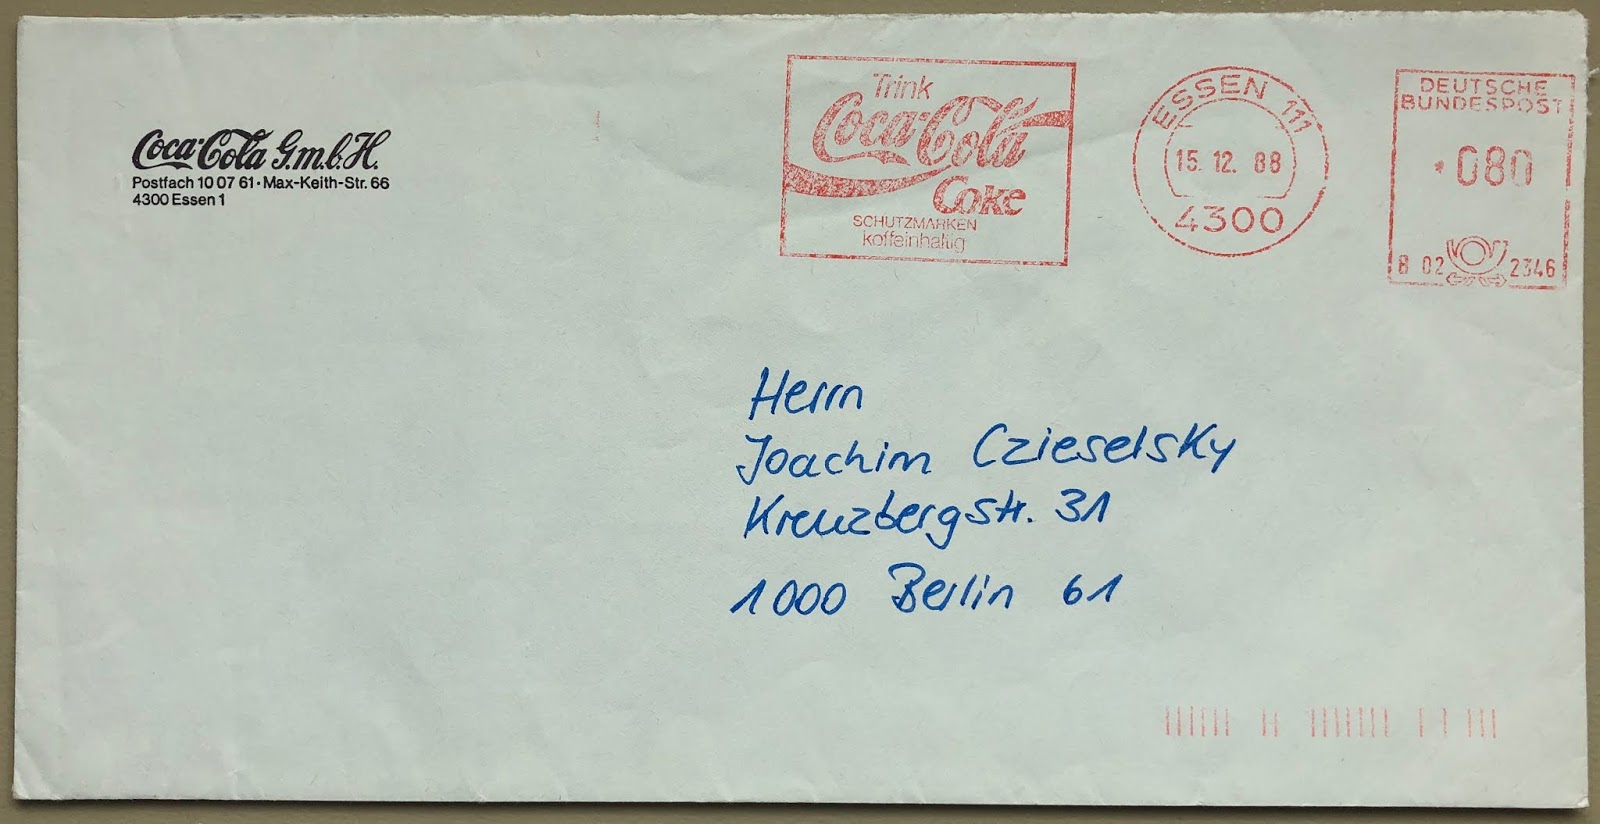 Coca-Cola G.m.b.H.
Postfach 10 07 61 · Max-Keith-Str. 66
4300 Essen 1
Trink
Coca-Cola
Coke
SCHUTZMARKEN
koffeinhaltig
ESSEN 111
15. 12. 88
4300
DEUTSCHE
BUNDESPOST
*080
B 02 2346
Herrn
Joachim Czieselsky
Kreuzbergstr. 31
1000 Berlin 61